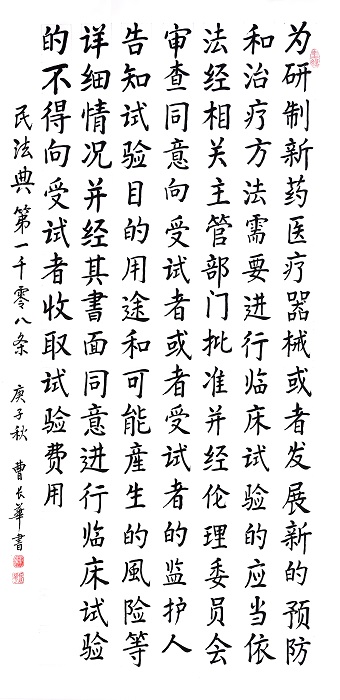 为研制新药医疗器械或者发展新的预防
和治疗方法需要进行临床试验的应当依
法经相关主管部门批准并经伦理委员会
审查同意向受试者或者受试者的监护人
告知试验目的用途和可能産生的風险等
详细情况并经其書面同意进行临床试验
的不得向受试者收取试验费用
民法典第一千零八条 庚子秋 曹长華書